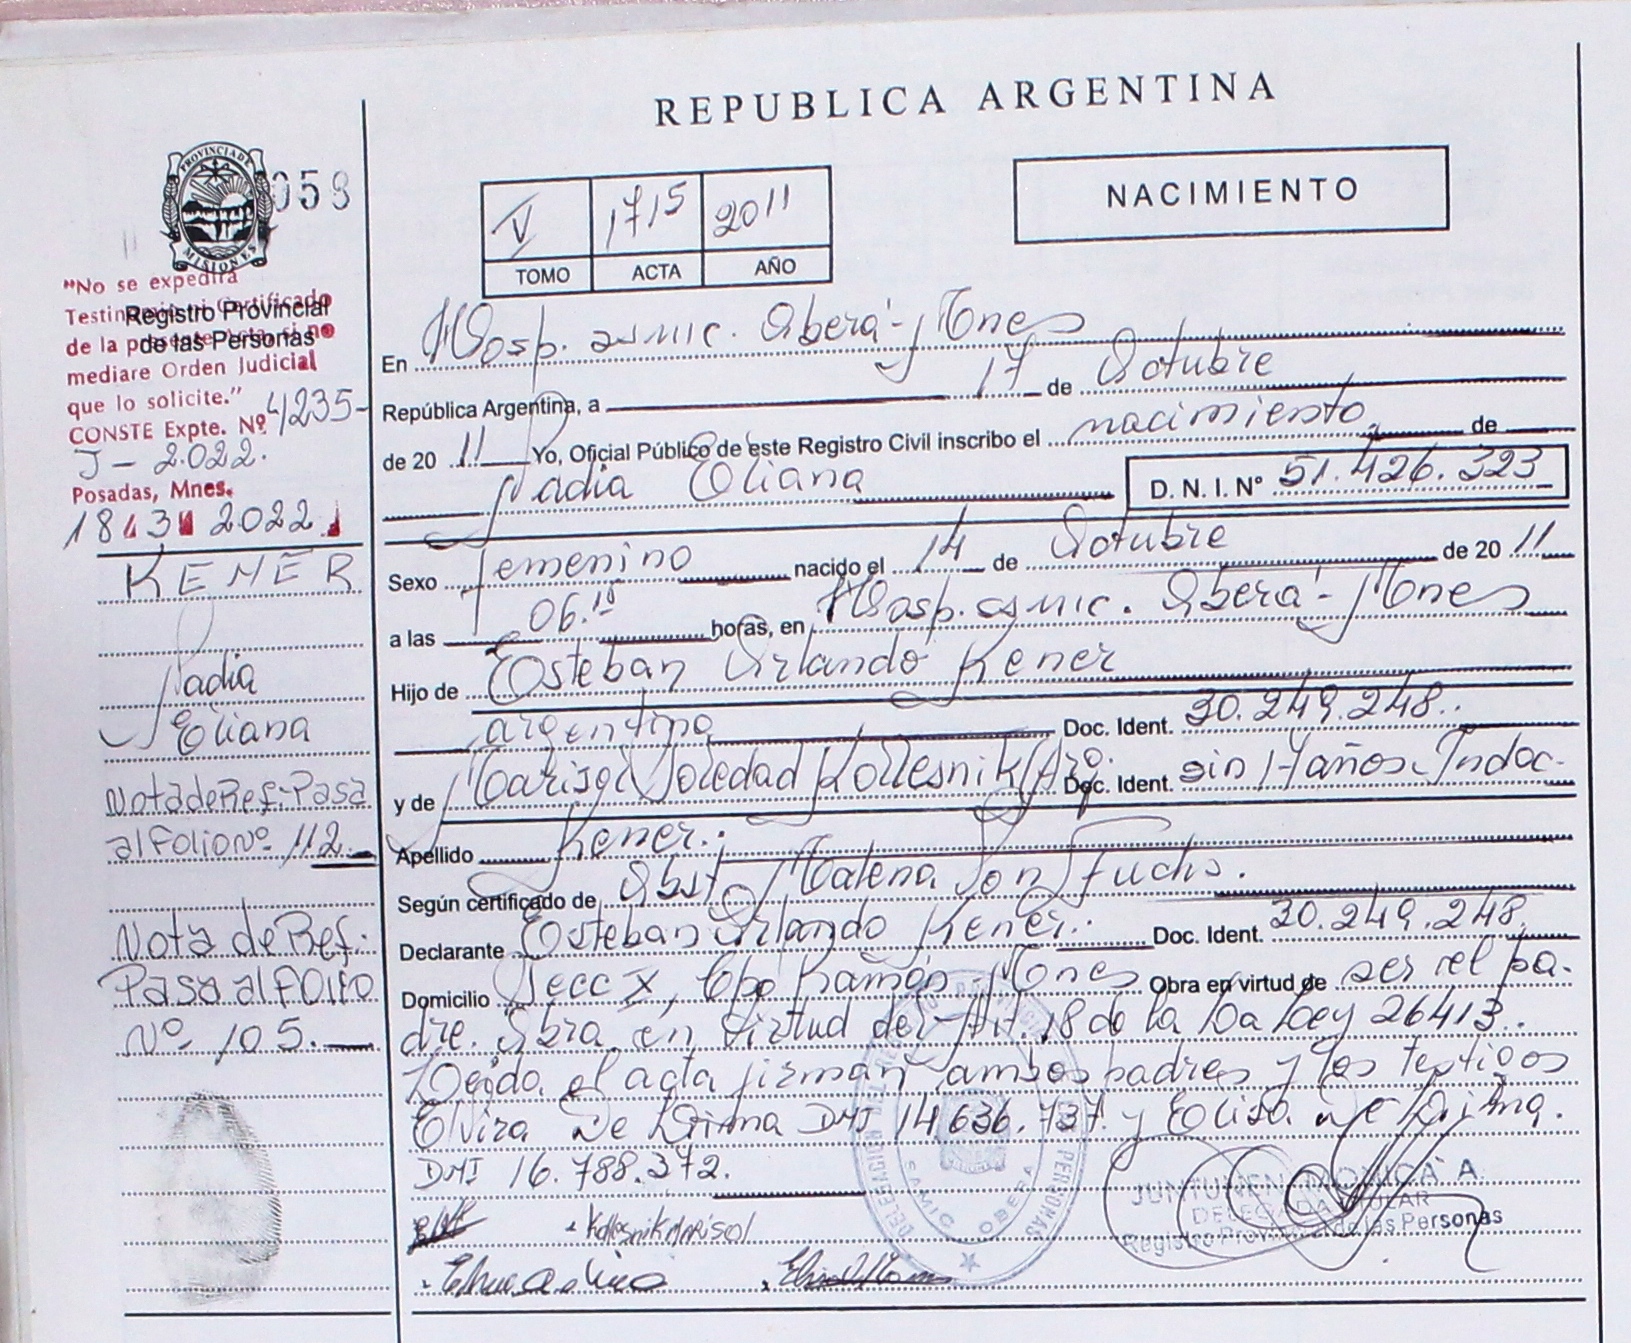 REPUBLICA ARGENTINA
PROVINCIA DE
MISIONES
058
V 1715 2011
TOMO ACTA AÑO
NACIMIENTO
"No se expedirá
Testimonio ni Certificado
de la presente Acta, si no
mediare Orden Judicial
que lo solicite."
CONSTE Expte. Nº 4235-
J - 2.022.
Posadas, Mnes.
18 3 2022
Registro Provincial
de las Personas
KENER
Nadia
Eliana
Nota de Ref.- Pasa
al Folio Nº 112.
Nota de Ref.-
Pasa al folio
Nº 105.
En Hosp. Oberá - Mnes
República Argentina, a 17 de Octubre
de 20 11 Yo, Oficial Público de este Registro Civil inscribo el nacimiento de
Nadia Eliana D. N. I. Nº 51.426.323
Sexo femenino nacido el 14 de Octubre de 20 11
a las 06. horas, en Hosp. Oberá - Mnes
Hijo de Esteban Orlando Kener
argentino Doc. Ident. 30.249.248.
y de Marisol Soledad Kollesnik Arg. Doc. Ident. sin 17 años. Indoc.
Apellido Kener.
Según certificado de Obst. Malena Von Fuchs.
Declarante Esteban Orlando Kener. Doc. Ident. 30.249.248.
Domicilio Secc X, Cpo Ramón Mnes Obra en virtud de ser el pa-
dre. Obra en virtud del Art. 18 de la Ley 26413.
Leída el acta firman ambos padres y los testigos
Elvira De Lima DNI 14.636.737 y Elisa De Lima.
DNI 16.788.372.
Kollesnik MARISOL
DELEGACION DEL REGISTRO PROVINCIAL DE LAS PERSONAS
SAMIC OBERA
JUNTUNEN MONICA A.
DELEGADA TITULAR
Registro Provincial de las Personas